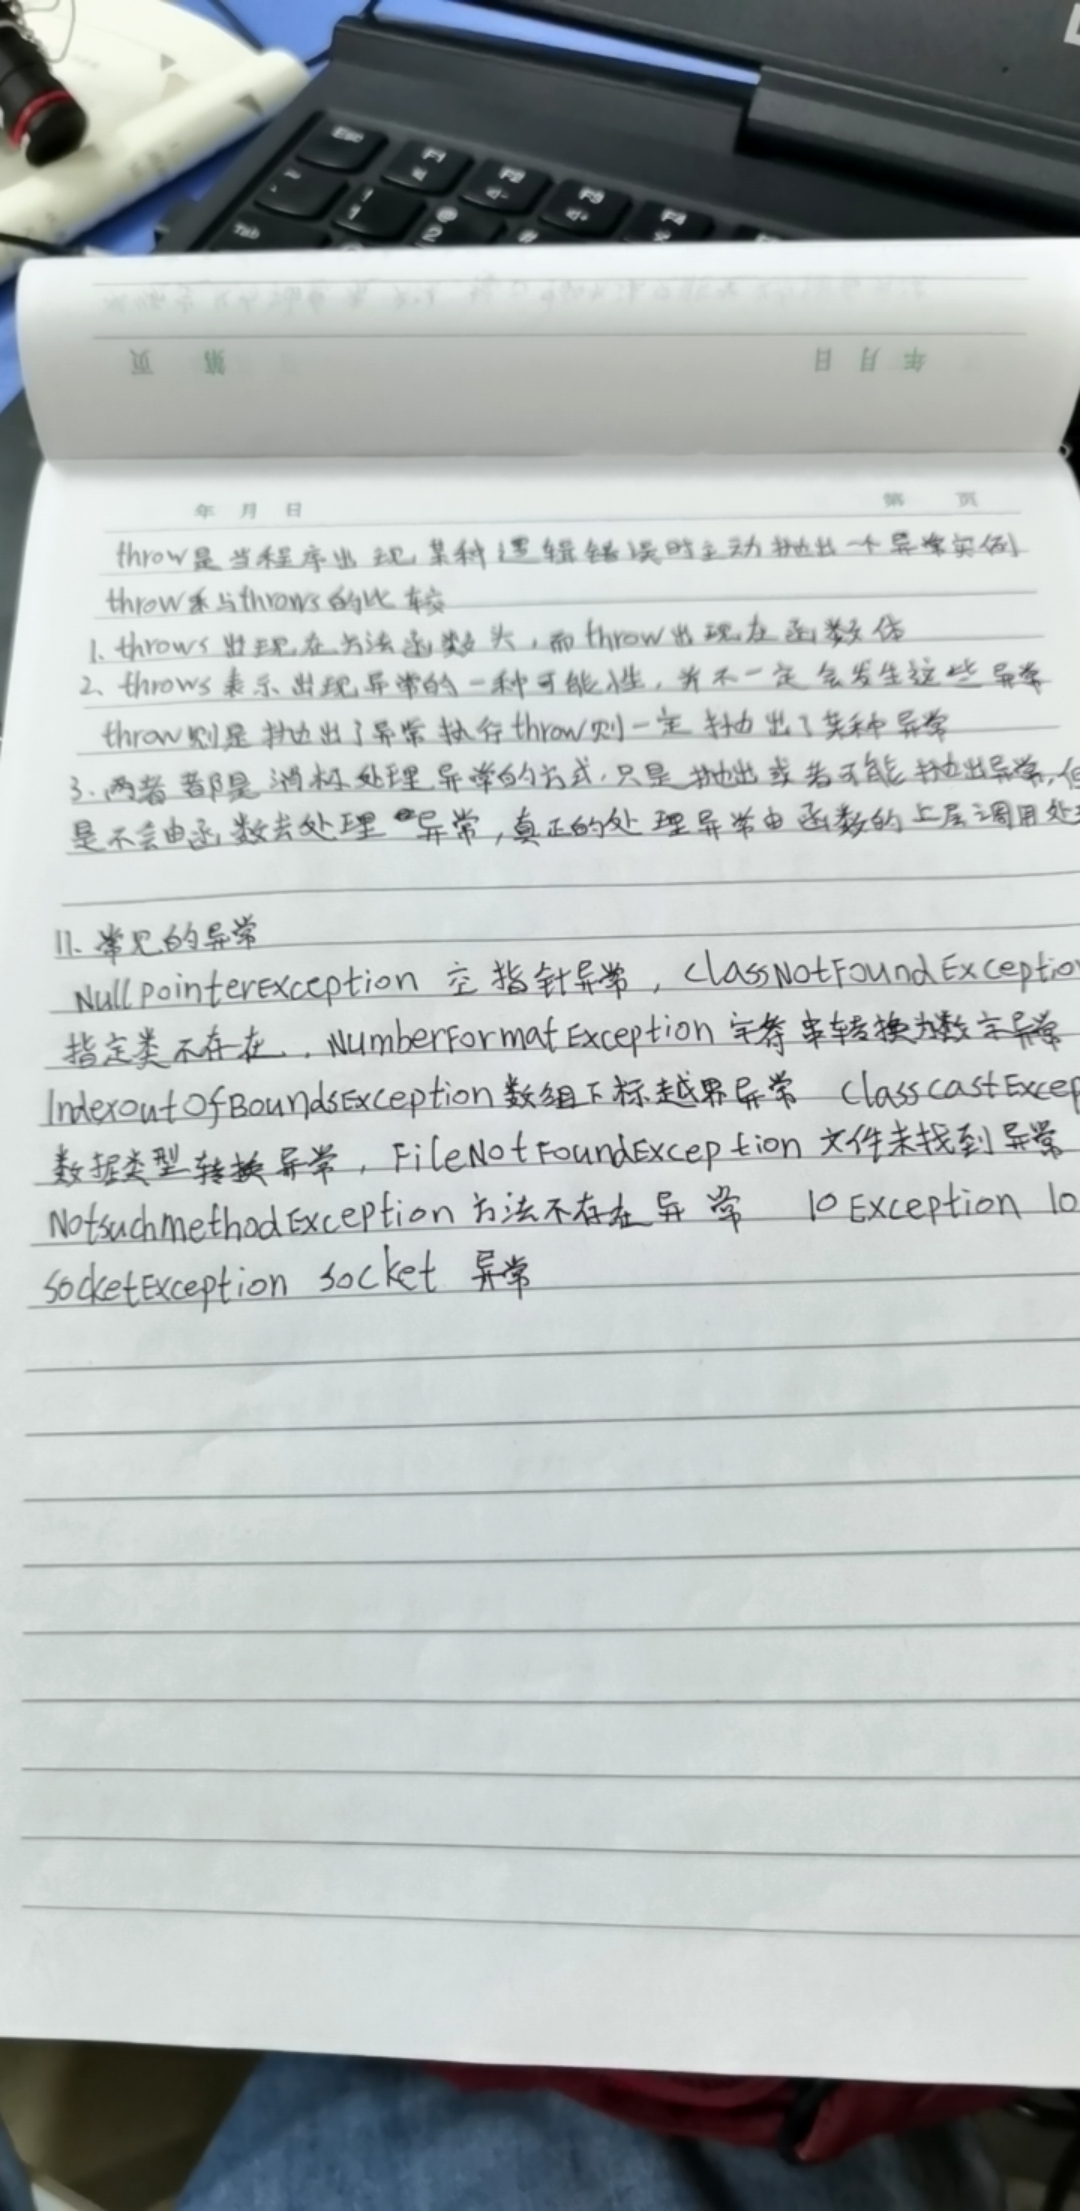 Esc
F1
F2
F3
F4
Tab
年 月 日
第 页
throw是当程序出现某种逻辑错误时主动抛出一个异常实例
throw与throws的比较
1. throws出现在方法函数头,而throw出现在函数体
2. throws表示出现异常的一种可能性,并不一定会发生这些异常
throw则是抛出了异常执行throw则一定抛出了某种异常
3. 两者都是消极处理异常的方式,只是抛出或者可能抛出异常,但
是不会由函数去处理异常,真正的处理异常由函数的上层调用处理
11. 常见的异常
NullpointerException 空指针异常,ClassNotFoundException
指定类不存在,NumberFormatException 字符串转换为数字异常
IndexoutOfBoundsException数组下标越界异常 ClasscastExcep
数据类型转换异常,FileNotFoundException 文件未找到异常
NotsuchmethodException 方法不存在异常 IOException IO
socketException socket 异常